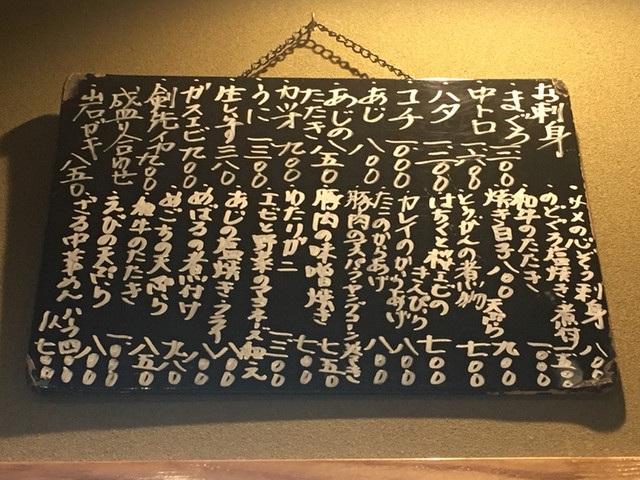 お刺身
まぐろ 一三〇〇
中トロ 一六〇〇
ハタ 一二〇〇
コチ 一〇〇〇
あじ 八〇〇
あじのたたき 八五〇
カツオ 九〇〇
うに 一三〇〇
生しらす 三八〇
ガスエビ 九〇〇
剣先イカ 九〇〇
盛り合わせ
岩ガキ 八五〇
サメの心ぞう刺身 八〇〇
のどぐろ塩焼き 煮付 一五〇〇
和牛のたたき 一〇〇〇
焼き白子 八〇〇 天ぷら 九〇〇
とうがんの煮物 七〇〇
はちくと桜エビのきんぴら 七〇〇
カレイのからあげ 八〇〇
たこのからあげ 八〇〇
豚肉の天プラ
豚肉の味噌焼き 七五〇
わたりガニ 一三〇〇
エビと野菜のマヨネーズ和え
あじの塩焼き フライ 八〇〇
めばるの煮付け
めごちの天ぷら
和牛のたたき
えびの天ぷら 一〇〇〇
ざる中華めん